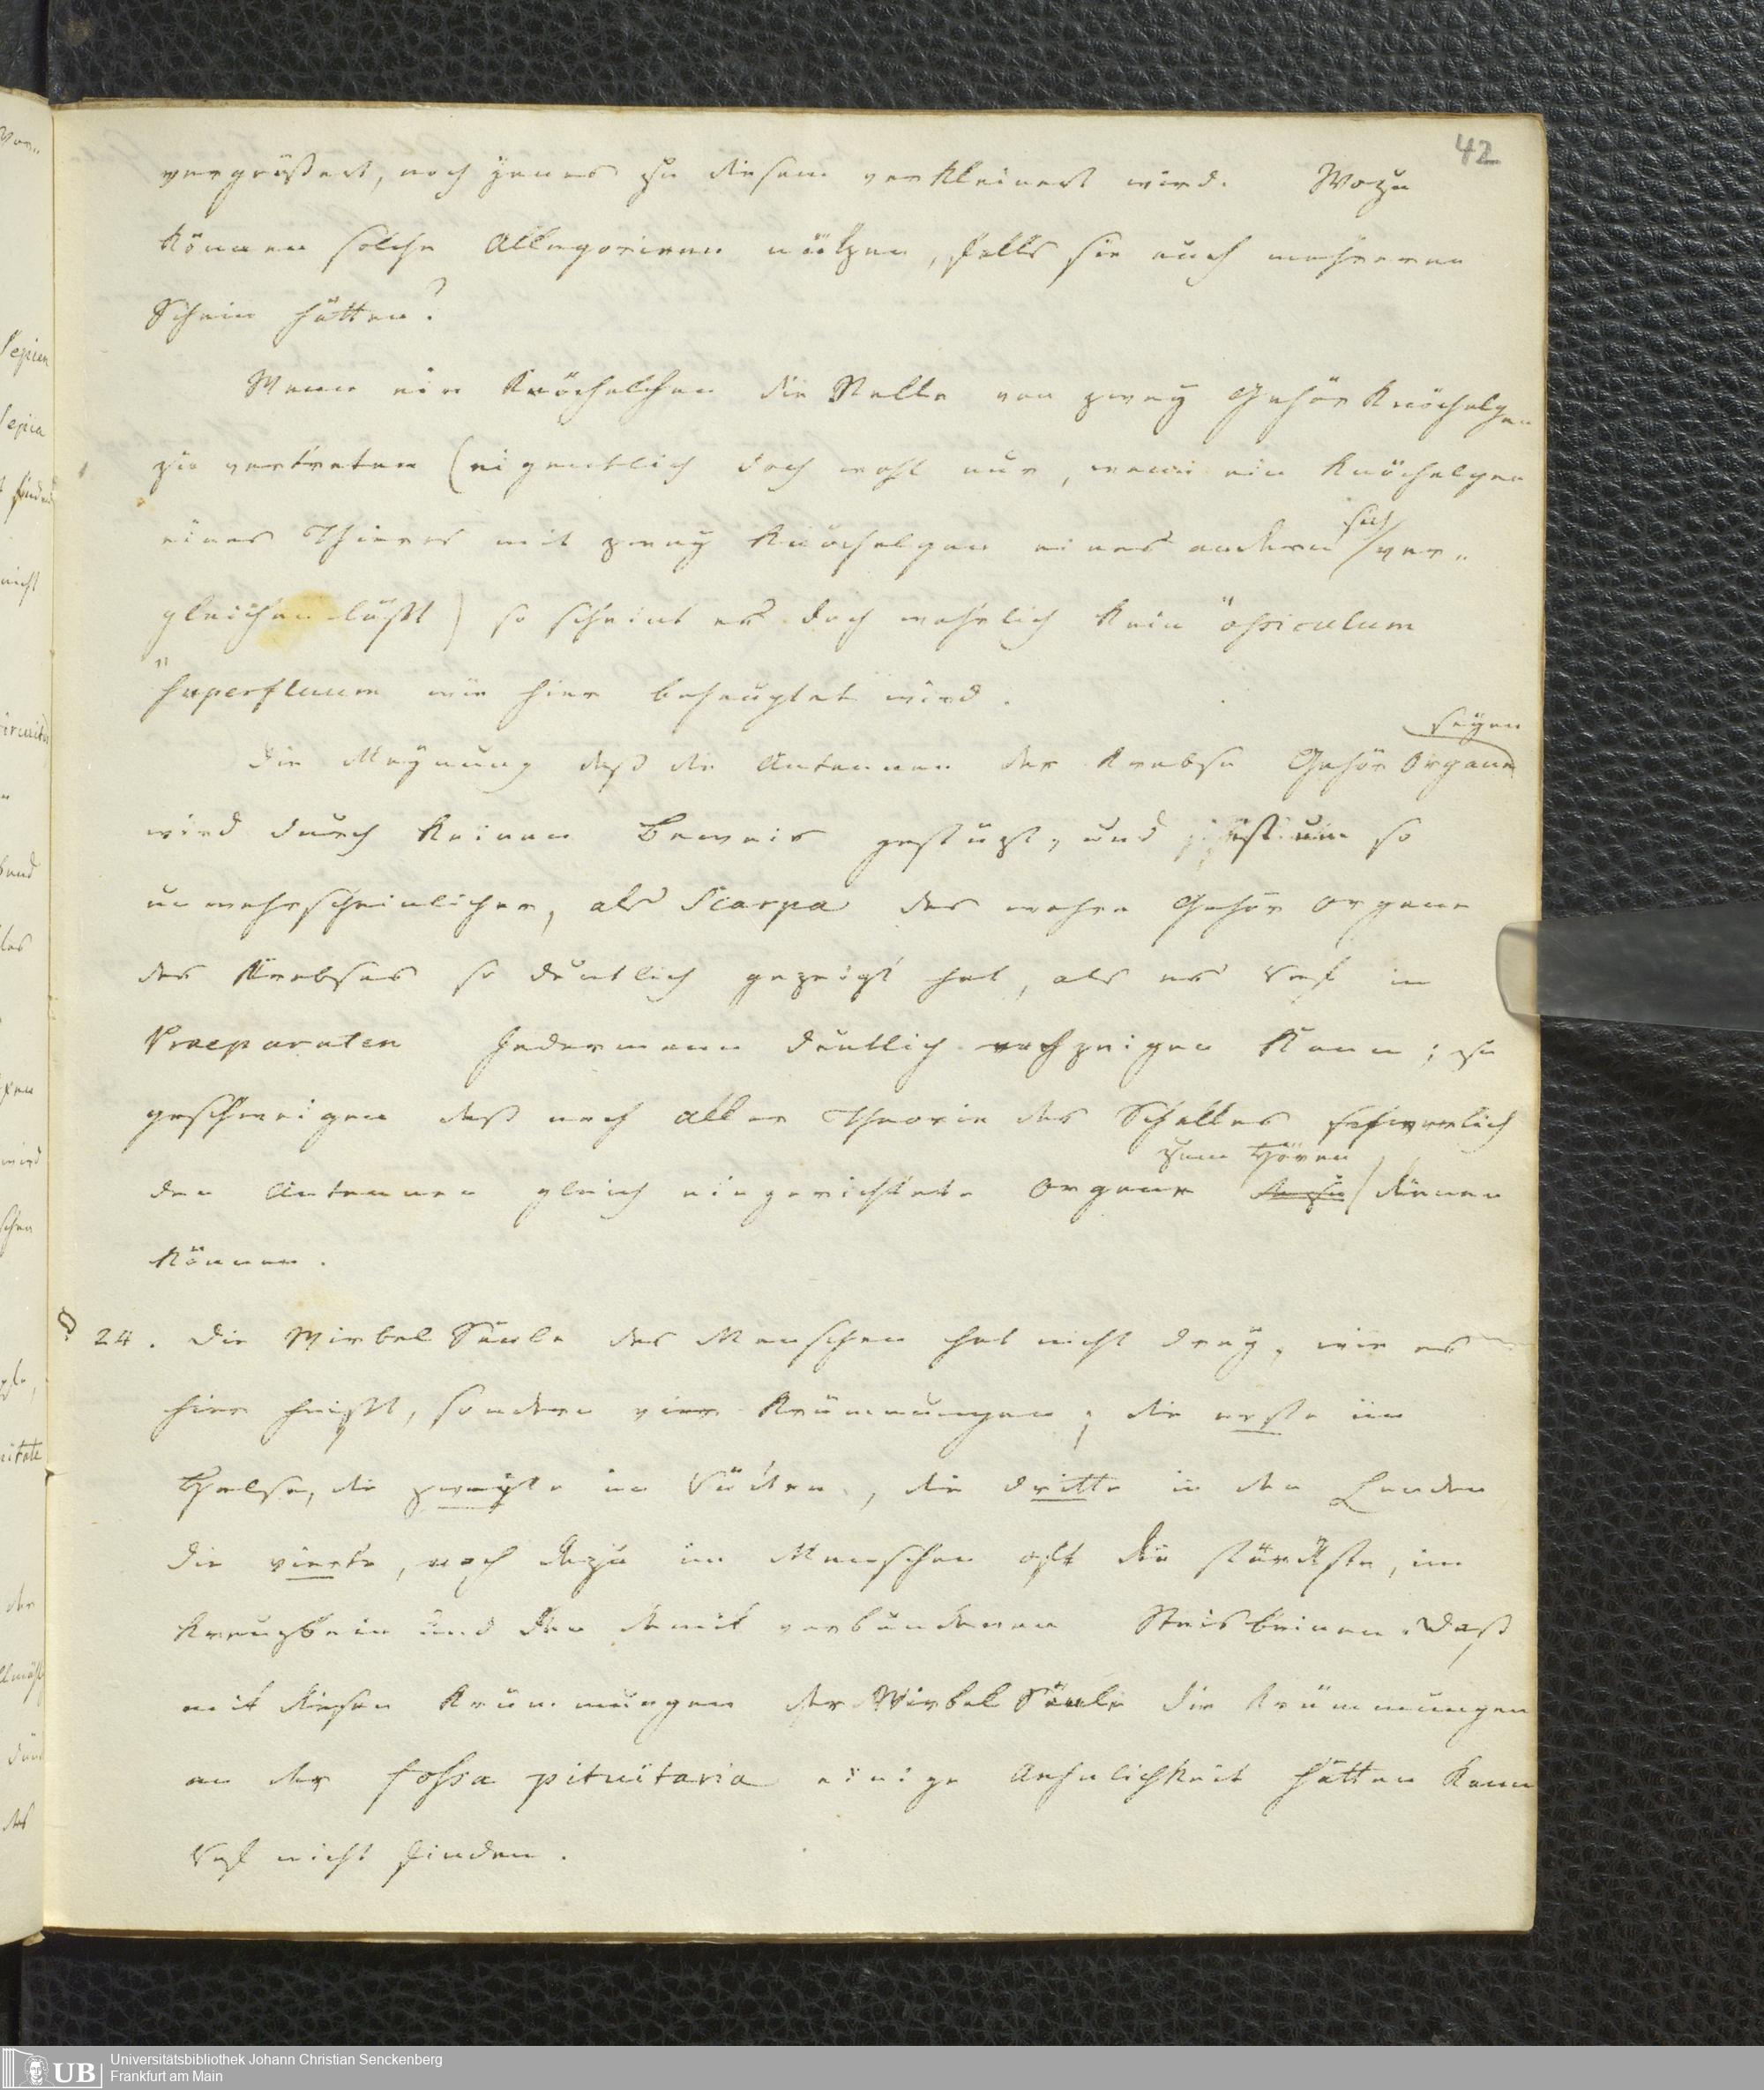 42
vergrößert, noch jenes zu diesem verkleinert wird. Wozu
können solche Allegorieen nützen, falls sie auch mehreren
Schein hätten?
Wenn ein Knöchelchen die Stelle von zwey Gehör Knöchelgen
zu vertreten (eigentlich doch wohl nur, wenn ein Knöchelgen
sich
eines Thieres mit zwey Knöchelgen eines andern ver„
gleichen läßt) so scheint es doch wahrlich kein "ossiculum
"superfluum wie hier behauptet wird.
seyen
Die Meynung daß die Antennen der Krebse Gehör Organe
wird durch keinen Beweis gestüzt, und ist um so
unwahrscheinlicher, als Scarpa das wahre Gehör Organ
des Krebses so deutlich gezeigt hat, als es Ref in
Praeparaten Jedermann deutlich vorzeigen kann; zu
geschweigen daß nach aller Theorie des Schalles schwerlich
zum Hören
den Antennen gleich eingerichtete Organe dienen
können.
24. Die Wirbel Säule des Menschen hat nicht drey, wie es
hier heißt, sondern vier Krümmungen; die erste im
Halse, die zweyte im Rücken, die dritte in den Lenden
die vierte, noch dazu im Menschen oft die stärkste, im
Kreuzbein und den damit verbundenen Steisbeinen. Daß
mit diesen Krümmungen der Wirbel Säule die Krümmungen
an der fossa pituitaria einige Aehnlichkeit hätten kann
Ref nicht finden.
Universitätsbibliothek Johann Christian Senckenberg
Frankfurt am Main
UB